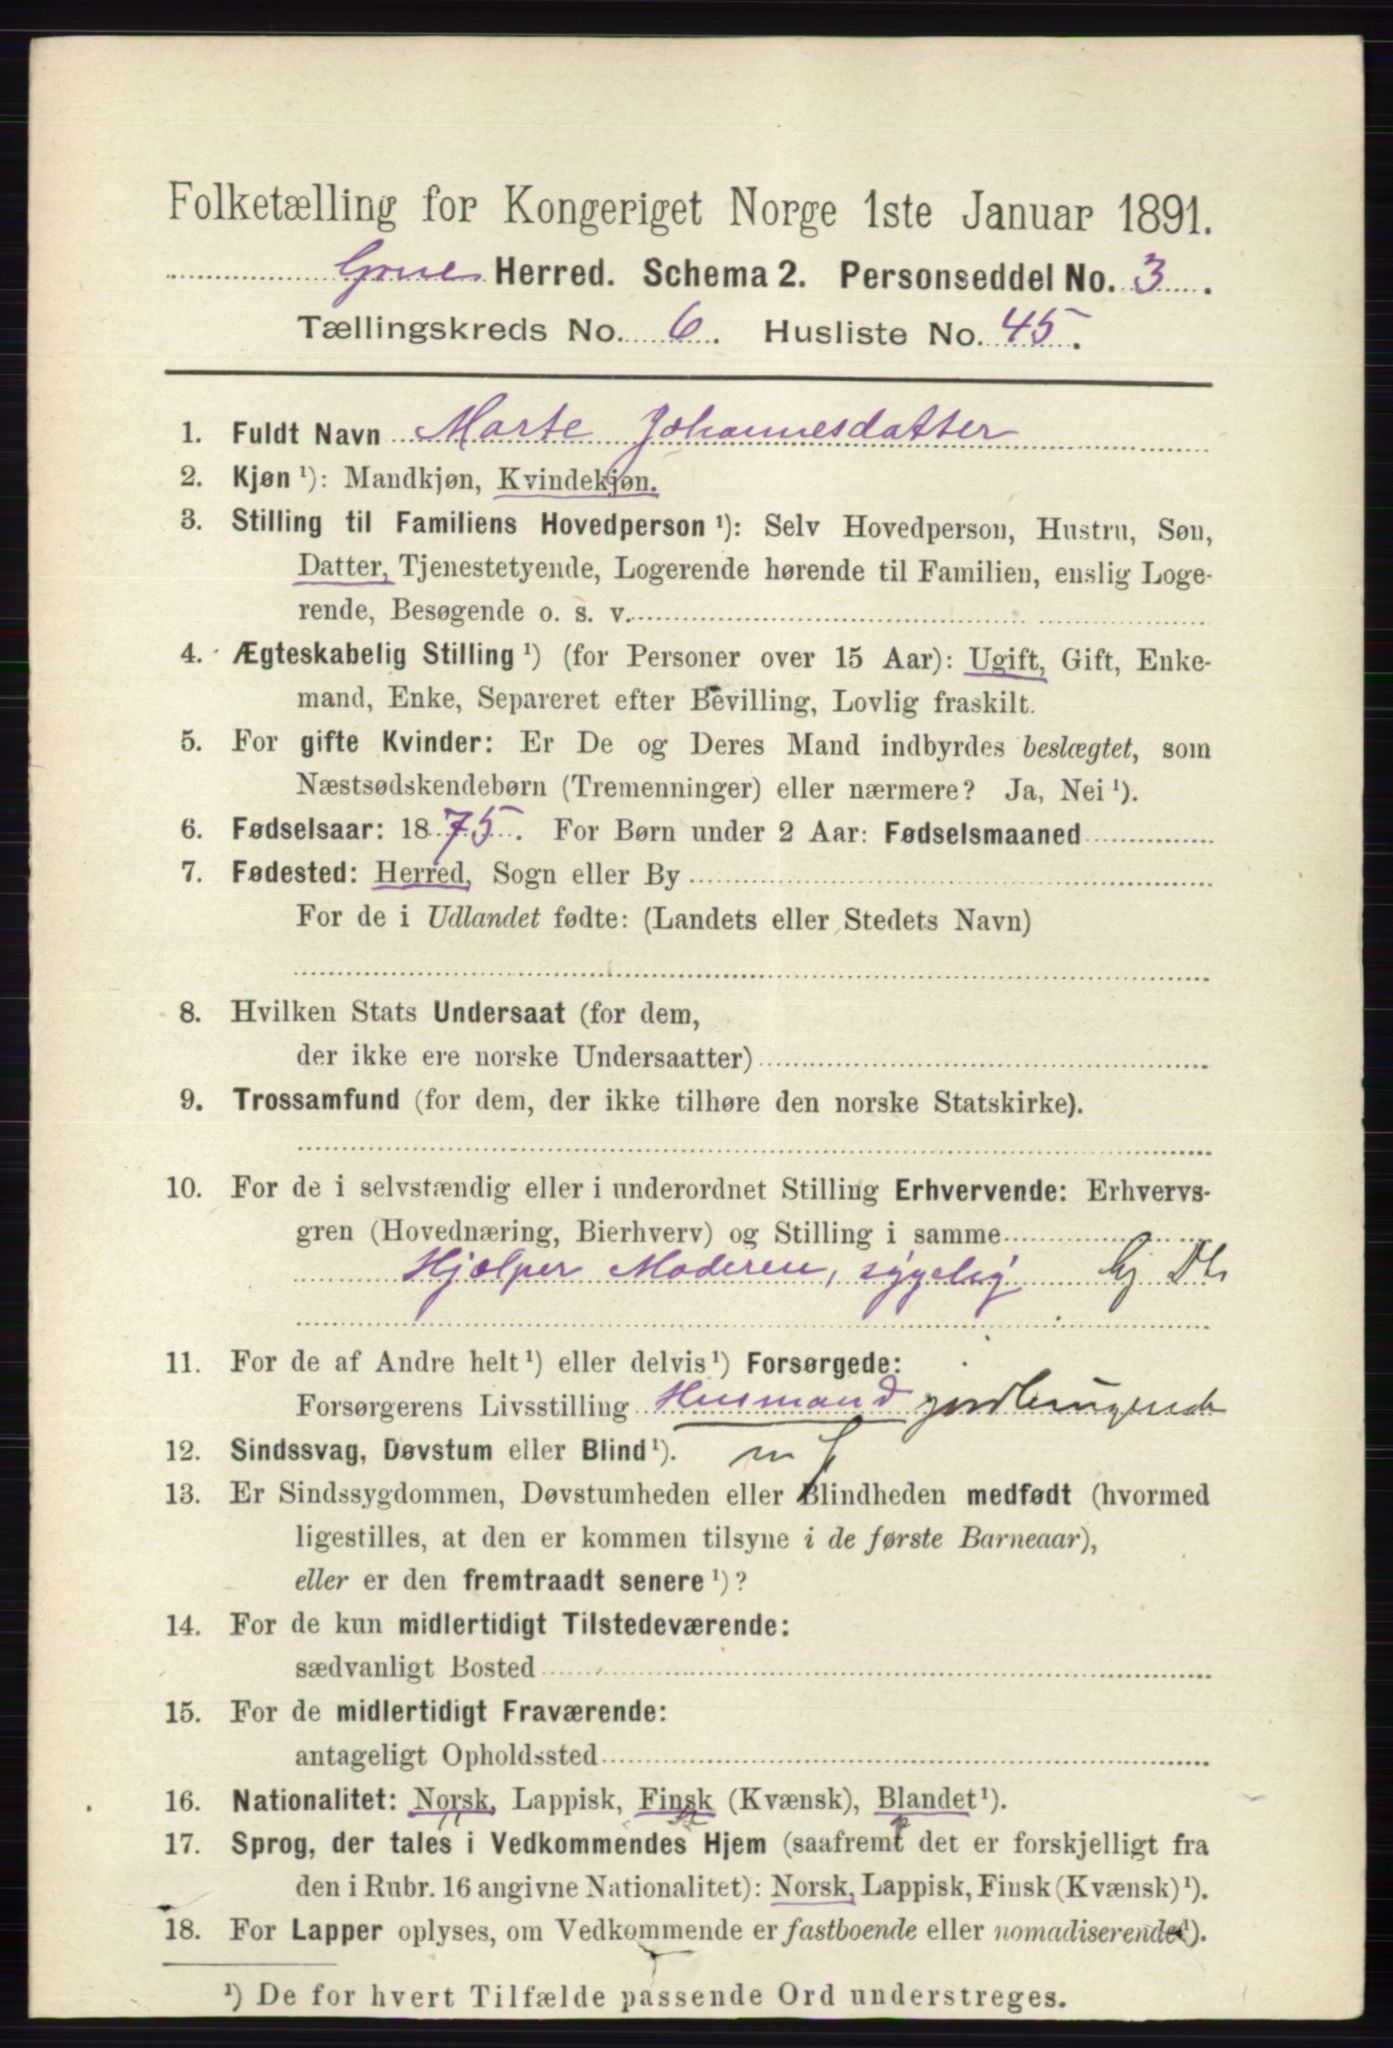 Folketælling for Kongeriget Norge 1ste Januar 1891.
Grue Herred. Schema 2. Personseddel No. 3.
Tællingskreds No. 6. Husliste No. 45.
1. Fuldt Navn Marte Johannesdatter
2. Kjøn ¹): Mandkjøn, Kvindekjøn.
3. Stilling til Familiens Hovedperson ¹): Selv Hovedperson, Hustru, Søn,
Datter, Tjenestetyende, Logerende hørende til Familien, enslig Loge-
rende, Besøgende o. s. v.
4. Ægteskabelig Stilling ¹) (for Personer over 15 Aar): Ugift, Gift, Enke-
mand, Enke, Separeret efter Bevilling, Lovlig fraskilt.
5. For gifte Kvinder: Er De og Deres Mand indbyrdes beslægtet, som
Næstsødskendebørn (Tremenninger) eller nærmere? Ja, Nei ¹).
6. Fødselsaar: 1875. For Børn under 2 Aar: Fødselsmaaned
7. Fødested: Herred, Sogn eller By
For de i Udlandet fødte: (Landets eller Stedets Navn)
8. Hvilken Stats Undersaat (for dem,
der ikke ere norske Undersaatter)
9. Trossamfund (for dem, der ikke tilhøre den norske Statskirke).
10. For de i selvstændig eller i underordnet Stilling Erhvervende: Erhvervs-
gren (Hovednæring, Bierhverv) og Stilling i samme
Hjælper Moderen, sygelig hj Dt.
11. For de af Andre helt ¹) eller delvis ¹) Forsørgede:
Forsørgerens Livsstilling Husmand jordbrugende
12. Sindssvag, Døvstum eller Blind ¹).
13. Er Sindssygdommen, Døvstumheden eller Blindheden medfødt (hvormed
ligestilles, at den er kommen tilsyne i de første Barneaar),
eller er den fremtraadt senere ¹)?
14. For de kun midlertidigt Tilstedeværende:
sædvanligt Bosted
15. For de midlertidigt Fraværende:
antageligt Opholdssted
16. Nationalitet: Norsk, Lappisk, Finsk (Kvænsk), Blandet ¹).
17. Sprog, der tales i Vedkommendes Hjem (saafremt det er forskjelligt fra
den i Rubr. 16 angivne Nationalitet): Norsk, Lappisk, Finsk (Kvænsk) ¹).
18. For Lapper oplyses, om Vedkommende er fastboende eller nomadiserende ¹).
¹) De for hvert Tilfælde passende Ord understreges.